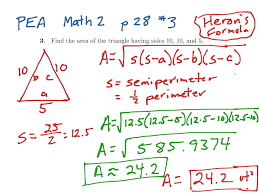 PEA Math 2 p 28 #3
Heron's Formula
3. Find the area of the triangle having sides 10, 10, and 5.
A = √s(s-a)(s-b)(s-c)
10 b c 10
a
5
s = semiperimeter
= 1/2 perimeter
S = 25/2 = 12.5
A = √12.5(12.5-5)(12.5-10)(12.5-10)
A = √585.9374
A ≈ 24.2
A = 24.2 un²